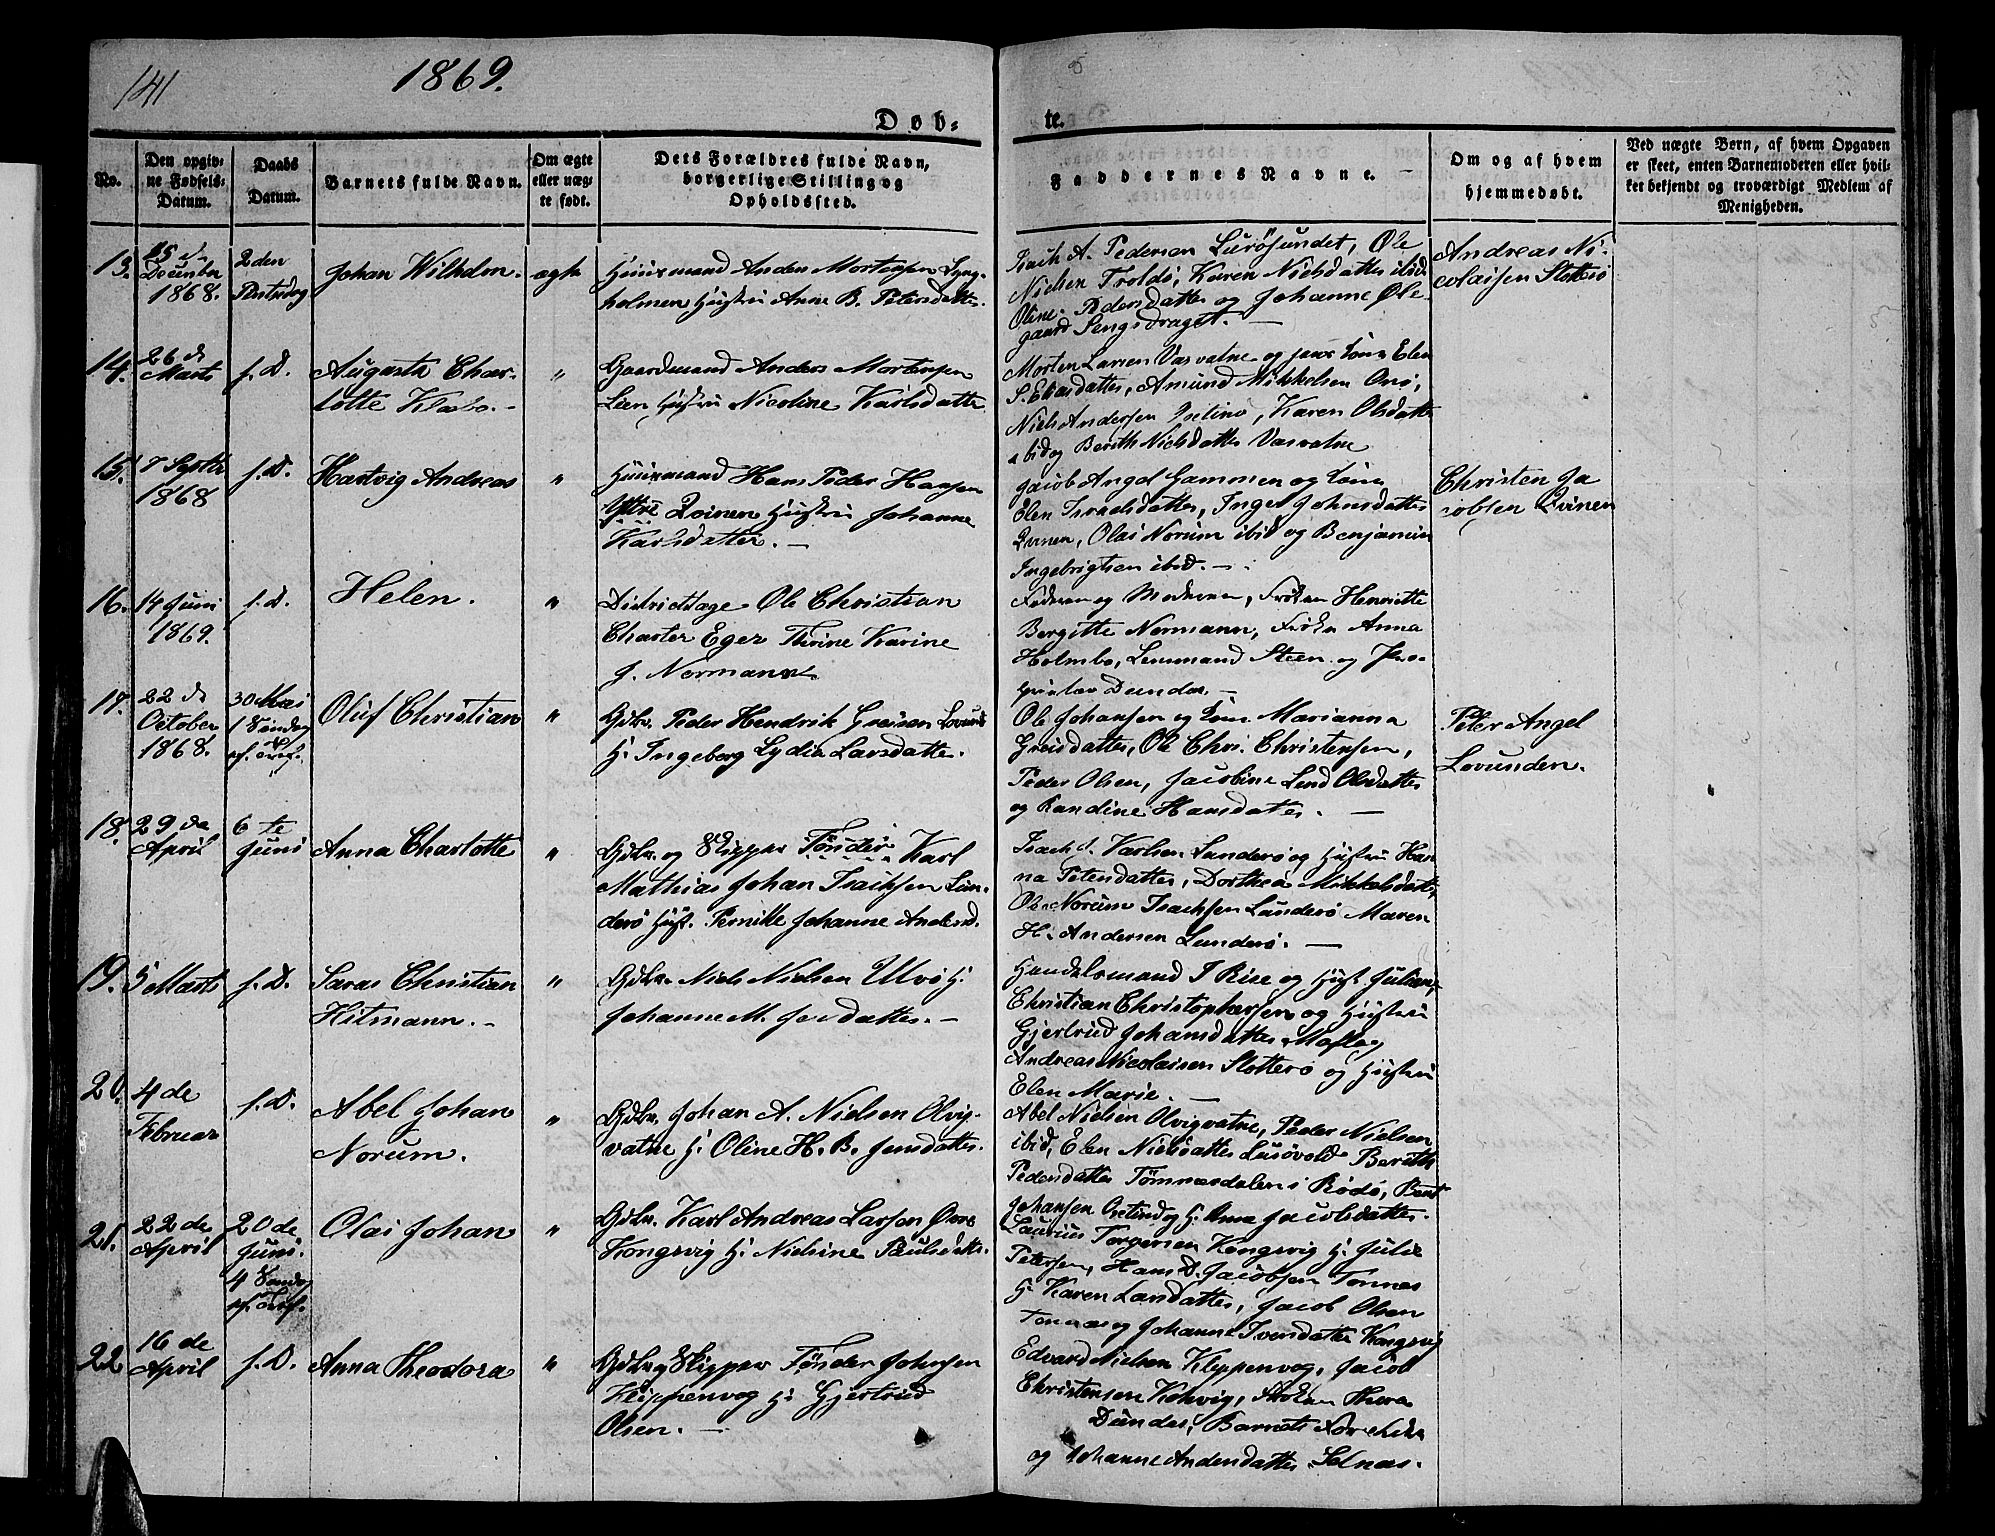 141
1869.
Døb-
te.
No.
Den opgiv-
ne Fødsels-
Datum.
Daabs
Datum.
Barnets fulde Navn.
Om ægte
eller uæg-
te født.
Dets Forældres fulde Navn,
borgerlige Stilling og
Opholdssted.
Faddernes Navne.
Om og af hvem
hjemmedøbt.
Ved uægte Børn, af hvem Opgaven
er skeet, enten Barnemoderen eller hvil-
ket bekjendt og troværdigt Medlem af
Menigheden.
13.
15 d.
December
1868.
2den
Johan Wilhelm.
ægte
Huusmand Anders Mortensen Lyng-
holmen Hustru Anne B. Petersdatter
Isach A. Pedersen Lurøsundet, Ole
Nielsen Troldø, Karen Nielsdatter ibid
Oline Pedersdatter og Johanne Ole-
gaard Sengsdraget. —
Andreas Ni-
colaisen Slotterø
14.
26 de
Marts
f. D.
Augusta Char-
lotte
"
Gaardmand Anders Mortensen
Leen Hustru Nicoline Karlsdatter
Morten Larsen Vasvatne og Elen
S. Eliasdatter, Amund Mikkelsen Onø,
Niels Andersen Karen Olsdatter
ibid og Berith Nielsdatter Vasvatne
15.
7 Septbr
1868
f. D.
Hartvig Andreas
"
Huusmand Hans Peder Hansen
Ytre Qvinen Hustru Johanne
Karlsdatter. —
Jacob Angel Gammen og
Elen Israelsdatter, Inger Johnsdatter
Qvinen, Olai Norum ibid og Benjamin
Ingebrigtsen ibid. —
Christen Ja
cobsen Qvinen
16.
14 Juni
1869.
f. D.
Helen.
"
Districtslæge Ole Christian
Charter Eger Karine
J. Normann
Faderen og Moderen, Frøken Henriette
Bergitte Normann, Frøken Anna
Holmbo, Lensmand Steen og
Dundas —
17.
22 de
October
1868.
30 Mai
1 Søndag
ef. Tref.
Oluf Christian
"
Gdbr. Peder Hendrik Greisen Lovund
H. Ingeborg Lydia Larsdatter
Ole Johansen og Marianna
Greisdatter, Ole Chr. Christensen,
Peder Olsen, Jacobine Lund Olsdatter
og Randine Hansdatter. —
Peter Angel
Lovunden.
18.
29 de
April
6 te
Juni
Anna Charlotte
"
Gdbr. og Skipper Tønder Karl
Mathias Johan Isachsen Lun-
derø Hust. Pernille Johanne Andersd.
Isach J. Karlsen Lunderø og Hustru Han-
na Petersdatter, Dorthea Mikkelsdatter,
Ole Norum Isachsen Lunderø Maren
H. Andersen Lunderø. —
19.
5 Marts
f. D.
Saras Christian
Hitmann. —
"
Gdbr. Niels Nielsen Ulvø H.
Johanne M. Jensdatter. —
Handelsmand J Rise og Hust Juliane,
Christian Christophersen og Hustru
Gjertrud Johansdatter
Andreas Nicolaisen Slotterø og Hustru
Elen Marie. —
20.
4 de
Februar
f. D.
Abel Johan
Norum.
"
Gdbr. Johan A. Nielsen Olvig-
vatne H. Oline H. B. Jensdatter.
Abel Nielsen Olvigvatne, Peder Nielsen
ibid, Elen Nielsdatter Lurøvold Berith
Pedersdatter Tømnesdalen i Rødø, Bent
Johansen og H. Anna Jacobsdatter.
21.
22 de
April
20 de
Juni
4 Søndag
ef. Tref.
Olai Johan
"
Gdbr. Karl Andreas Larsen Øvre
Kongsvig H. Nielsine Paulsdatter.
Laurius Torgersen Kongsvig H. Julie
Petersen, Hans D. Jacobsen Tonnes
H. Karen Larsdatter, Jacob Olsen
Tonnes og Johanne Iversdatter Kongsvig
22
16 de
April
f. D.
Anna Theodora
"
Gdbr og Skipper Tønder Johnsen
Kleppenvog H. Gjertrud
Olsen. —
Edvard Nielsen Kleppenvog, Jacob
Christensen Kohvig, Frøken Thora
Dundas, Barnets Forældre
og Johanne Andersdatter Selnæs.